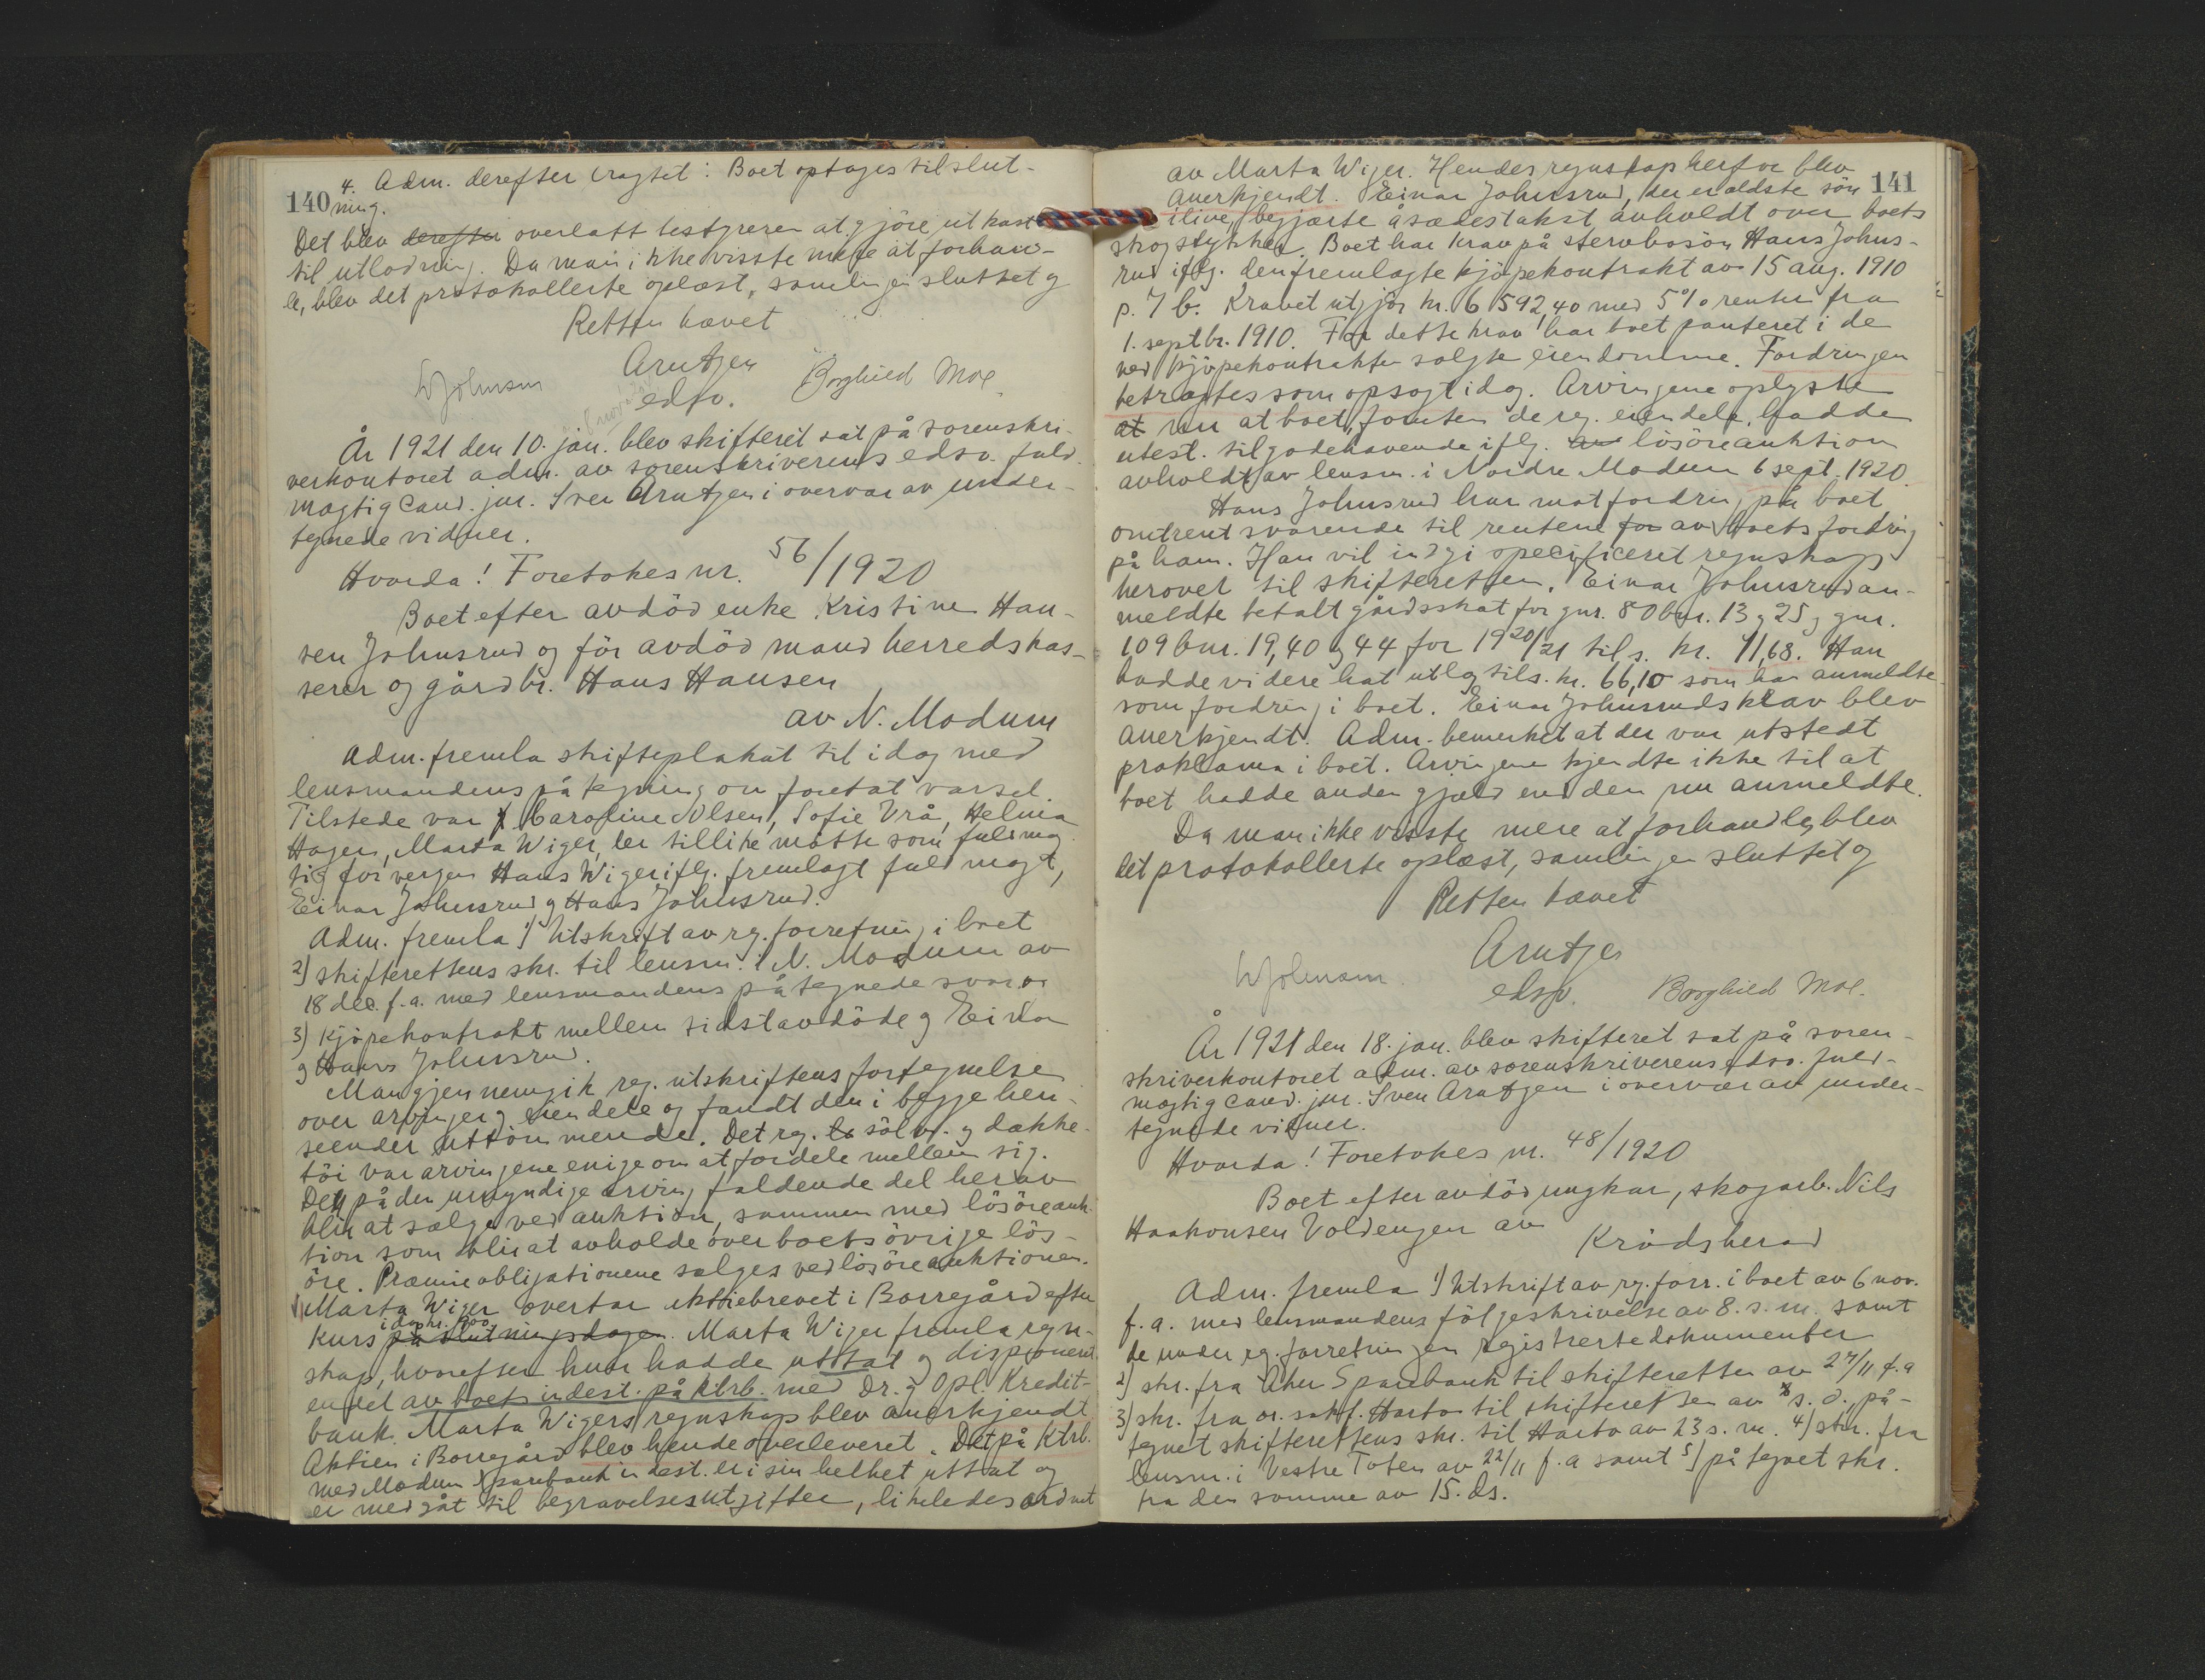 140
4. Adm. derefter avgset: Boet optages til slut-
ning.
Det blev derefter overlatt testgreren at gjöre utkast
til utlodning. Da man ikke visste mere at forhan-
le, blev det protokollerte oplæst, samlingen sluttet og
Retten hævet
Arntzen
WJohnsen edsv. Borghild Moe
År 1921 den 10. jan. blev skifteret sat på sorenskri-
verkontoret adm. av sorenskriverens edsv. fuld-
mægtig cand. jur. Sven Arntzen i overvær av under-
tegnede vidner.
Hvorda! Foretokes nr. 56/1920
Boet efter avdöd enke Kristine Han-
sen Johnsrud og för avdöd mand herredskas-
serer og gårdbr. Hans Hansen
av N. Modum
Adm. fremla skifteplakat til idag med
lensmandens påtegning om foretat varsel.
Tilstede var Caroline Olsen, Sofie Vrå, Helma
Hagen, Marta Wiger, der tillike mötte som fuldmæg
tig for vergen Hans Wiger iflg. fremlagt fuldmagt,
Einar Johnsrud og Hans Johnsrud.
Adm. fremla 1) Utskrift av rg. forretning i boet
2) skifterettens skr. til lensm. i N. Modum av
18 dec. f.a. med lensmandens påtegnede svar og
3) Kjöpekontrakt mellem sidstavdöde og Einar
og Hans Johnsrud.
Man gjennemgik reg. utskriftens fortegnelse
over arvinger og eiendele og fandt den i begge hen-
seender uttömmende. Det rg. lö sölv. og dække-
töi var arvingene enige om at fordele mellem sig.
Den på den umyndige arving faldende del herav
blir at sælge ved auktion, sammen med lösöreauk-
tion som blir at avholde over boets övrige lös-
öre. Præmieobligationene sælges ved lösöreauktionen.
Marta Wiger overtar aktiebrevet i Borregård efter
idag kr. 900.
kurs på slutningsdagen. Marta Wiger fremla regn-
skap, hvorefter hun hadde uttat og disponert
en del av boets indest. på ktrb. med Dr. og Opl. Kredit-
bank. Marta Wigers regnskap blev anerkjendt
Aktien i Borregård blev hende overleveret. Det på Ktrb.
med Modum Sparebank indest. er i sin helhet uttat og
er medgåt til begravelsesutgifter, likeledes ordnet
141
av Marta Wiger. Hendes regnskap herfor blev
anerkjendt. Einar Johnsrud, der er ældste sön
ilive, begjærte åsædestakst avholdt over boets
skogstykker. Boet har krav på stervbosön Hans Johns-
rud iflg. den fremlagte kjöpekontrakt av 15 aug. 1910
p. 7 b. Kravet utgjör kr. 6 592,40 med 5% renter fra
1. septbr. 1910. For dette krav har boet panteret i de
ved kjöpekontrakten solgte eiendomme. Fordringen
betragtes som opsagt idag. Arvingene oplyste
at nu at boet, foruten de rg. eiendele, hadde
utest. tilgodehavende iflg. av lösöreauktion
avholdt av lensm. i Nordre Modum 6 sept. 1920.
Hans Johnsrud har motfordring på boet
omtrent svarende til rentene for av boets fordring
på ham. Han vil indgi specificeret regnskap
herover til skifteretten. Einar Johnsrud an-
meldte betalt gårdsskat for gnr. 80 bnr. 13 og 25, gnr.
109 bnr. 19, 40 og 44 for 1920/21 tils. kr. 11,68. Han
hadde videre hat utlæg tils. kr. 66,10 som han anmeldte
som fordring i boet. Einar Johnsruds krav blev
anerkjendt. Adm. bemerket at der var utstedt
proklama i boet. Arvingene kjendte ikke til at
boet hadde anden gjæld end den nu anmeldte.
Da man ikke visste mere at forhandle, blev
det protokollerte oplæst, samlingen sluttet og
Retten hævet
Arntzen
WJohnsen edsv. Borghild Moe.
År 1921 den 18. jan. blev skifteret sat på soren-
skriverkontoret adm. av sorenskriverens edsv. fuld-
mægtig cand. jur. Sven Arntzen i overvær av under-
tegnede vidner.
Hvorda! Foretokes nr. 48/1920
Boet efter avdöd ungkar, skogarb. Nils
Haakonsen Voldengen av
Krödsherad
Adm. fremla 1) Utskrift av rg. forr. i boet av 6 nov.
f.a. med lensmandens fölgeskrivelse av 8. s.m. samt
de under rg. forretningen registrerte dokumenter
2) skr. fra Aker Sparebank til skifteretten av 27/11 f.a
3) skr. fra or. sakf. Harto til skifteretten av s.d. på-
tegnet skifterettens skr. til Harto av 23 s.m. 4) skr. fra
lensm. i Vestre Toten av 22/11 f.a samt 5) påtegnet skr.
fra den samme av 15. ds.